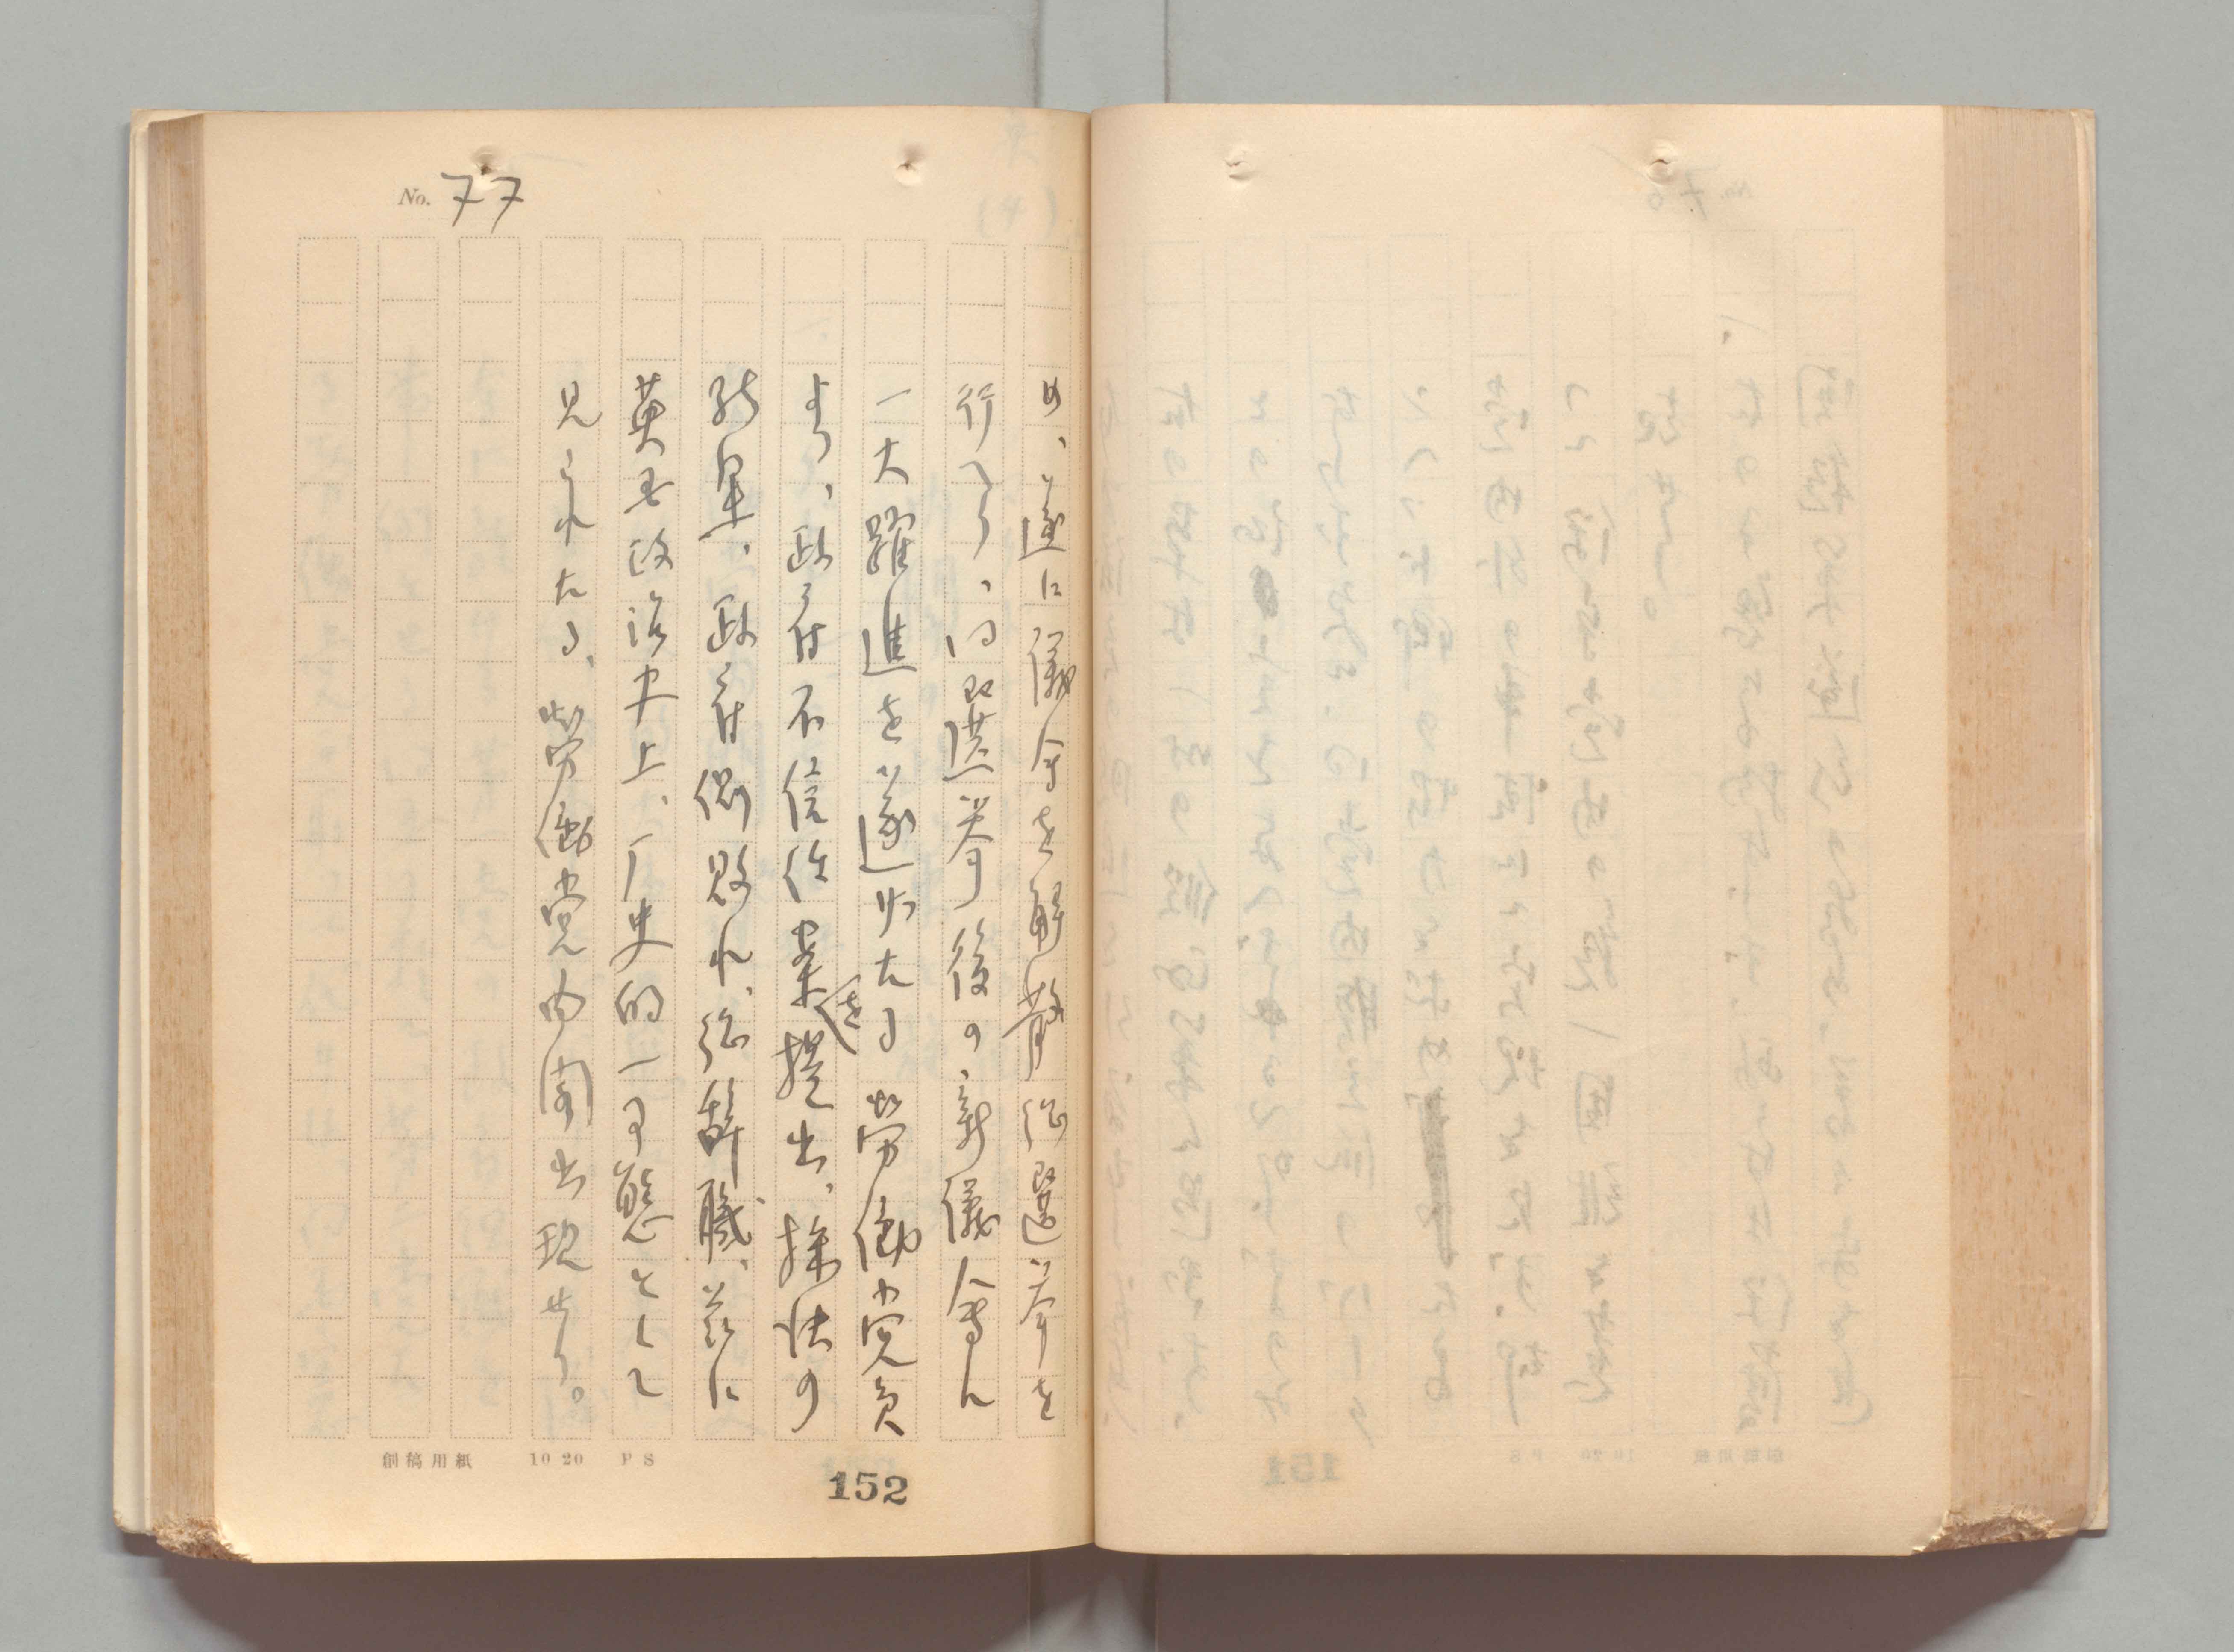 No. 77
め、遂に議会を解散総選挙を
行へり、同選挙後の、新議会に
一大躍進を遂げたる労働党員
より、政府不信任案を提出、採決の
結果、政府側敗れ、総辞職、茲に
英国政治史上、歴史的一事態として
見られたる、労働党内閣出現せり。
創稿用紙 10 20 PS
152